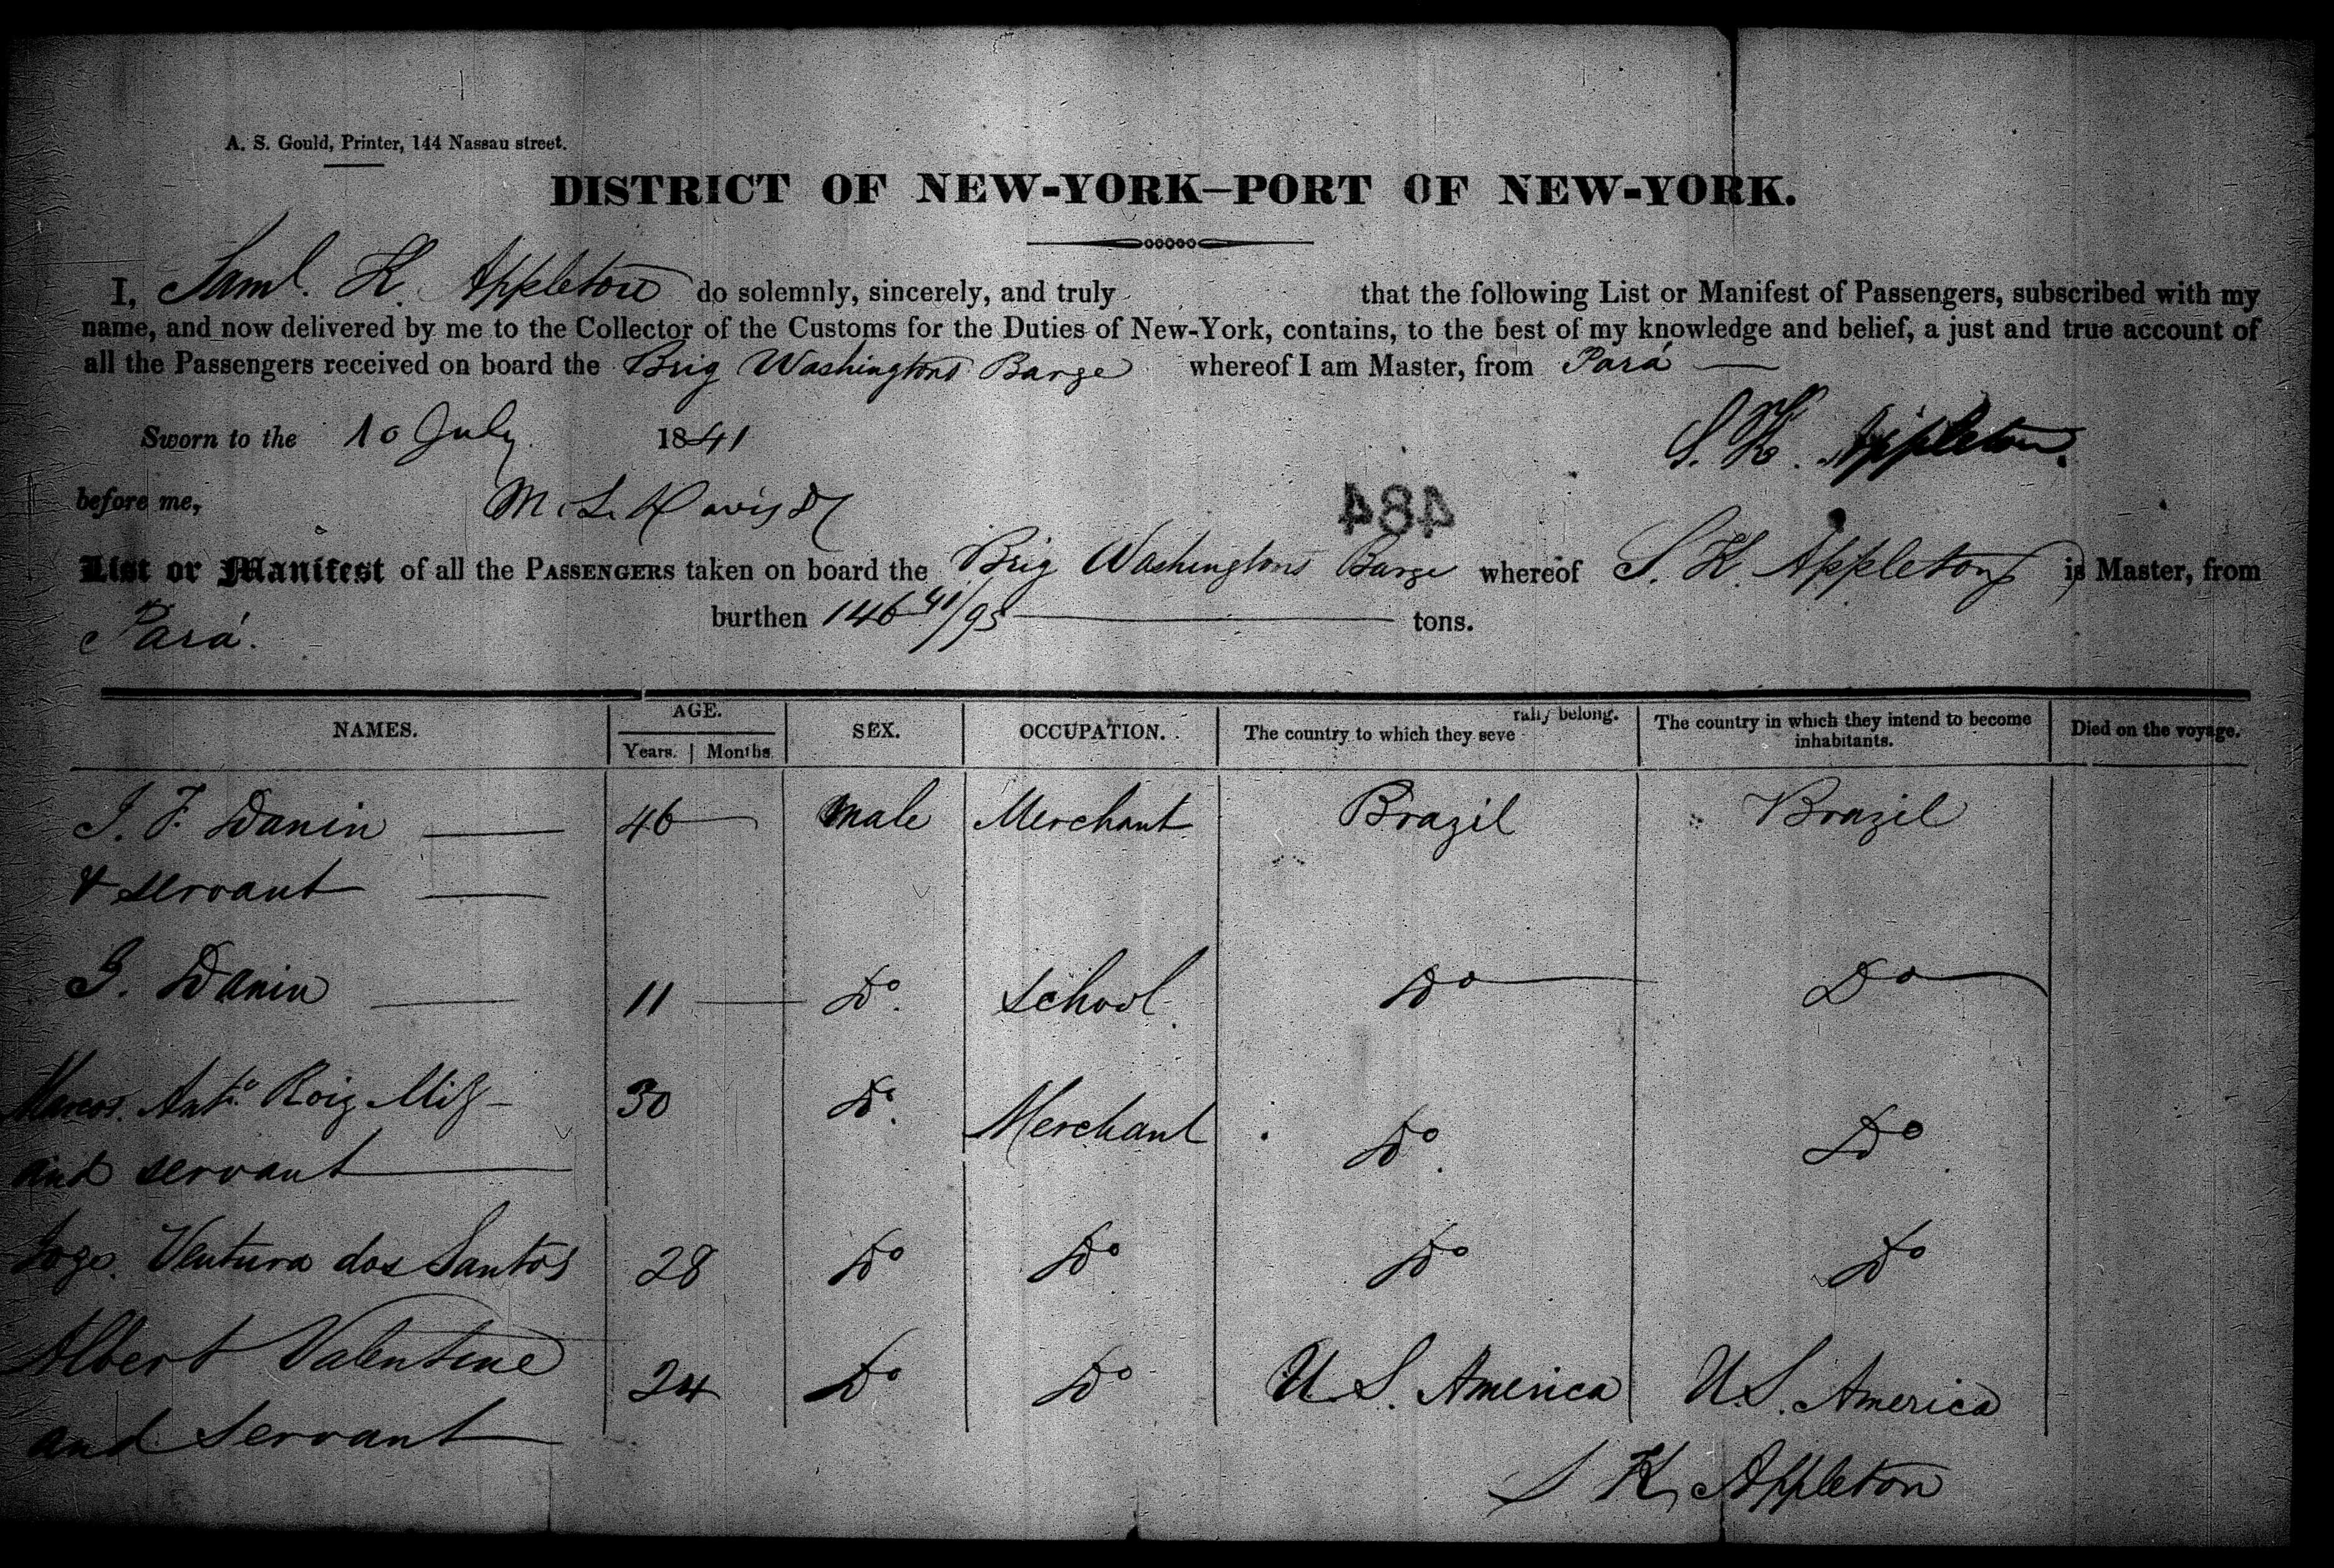 A. S. Gould, Printer, 144 Nassau street.
DISTRICT OF NEW-YORK—PORT OF NEW-YORK.
I, Saml. K. Appleton do solemnly, sincerely, and truly that the following List or Manifest of Passengers, subscribed with my
name, and now delivered by me to the Collector of the Customs for the Duties of New-York, contains, to the best of my knowledge and belief, a just and true account of
all the Passengers received on board the Brig Washingtons Barge whereof I am Master, from Pará —
Sworn to the 10 July 1841
S. K. Appleton.
before me, M. L. Davis
484
List or Manifest of all the PASSENGERS taken on board the Brig Washingtons Barge whereof S. K. Appleton is Master, from
Pará. burthen 146 41/95 tons.
NAMES. AGE. SEX. OCCUPATION. The country to which they severally belong. The country in which they intend to become inhabitants. Died on the voyage.
Years. | Months
J. F. Danin — 46 male Merchant Brazil Brazil
& servant —
J. Danin — 11 — Do. School. Do Do
Marcos. Anto. Roiz — 30 Do. Merchant Do. Do.
and servant —
Ventura dos Santos 28 Do Do Do Do
Albert Valentine 24 Do Do U. S. America U. S. America
and servant
S K Appleton